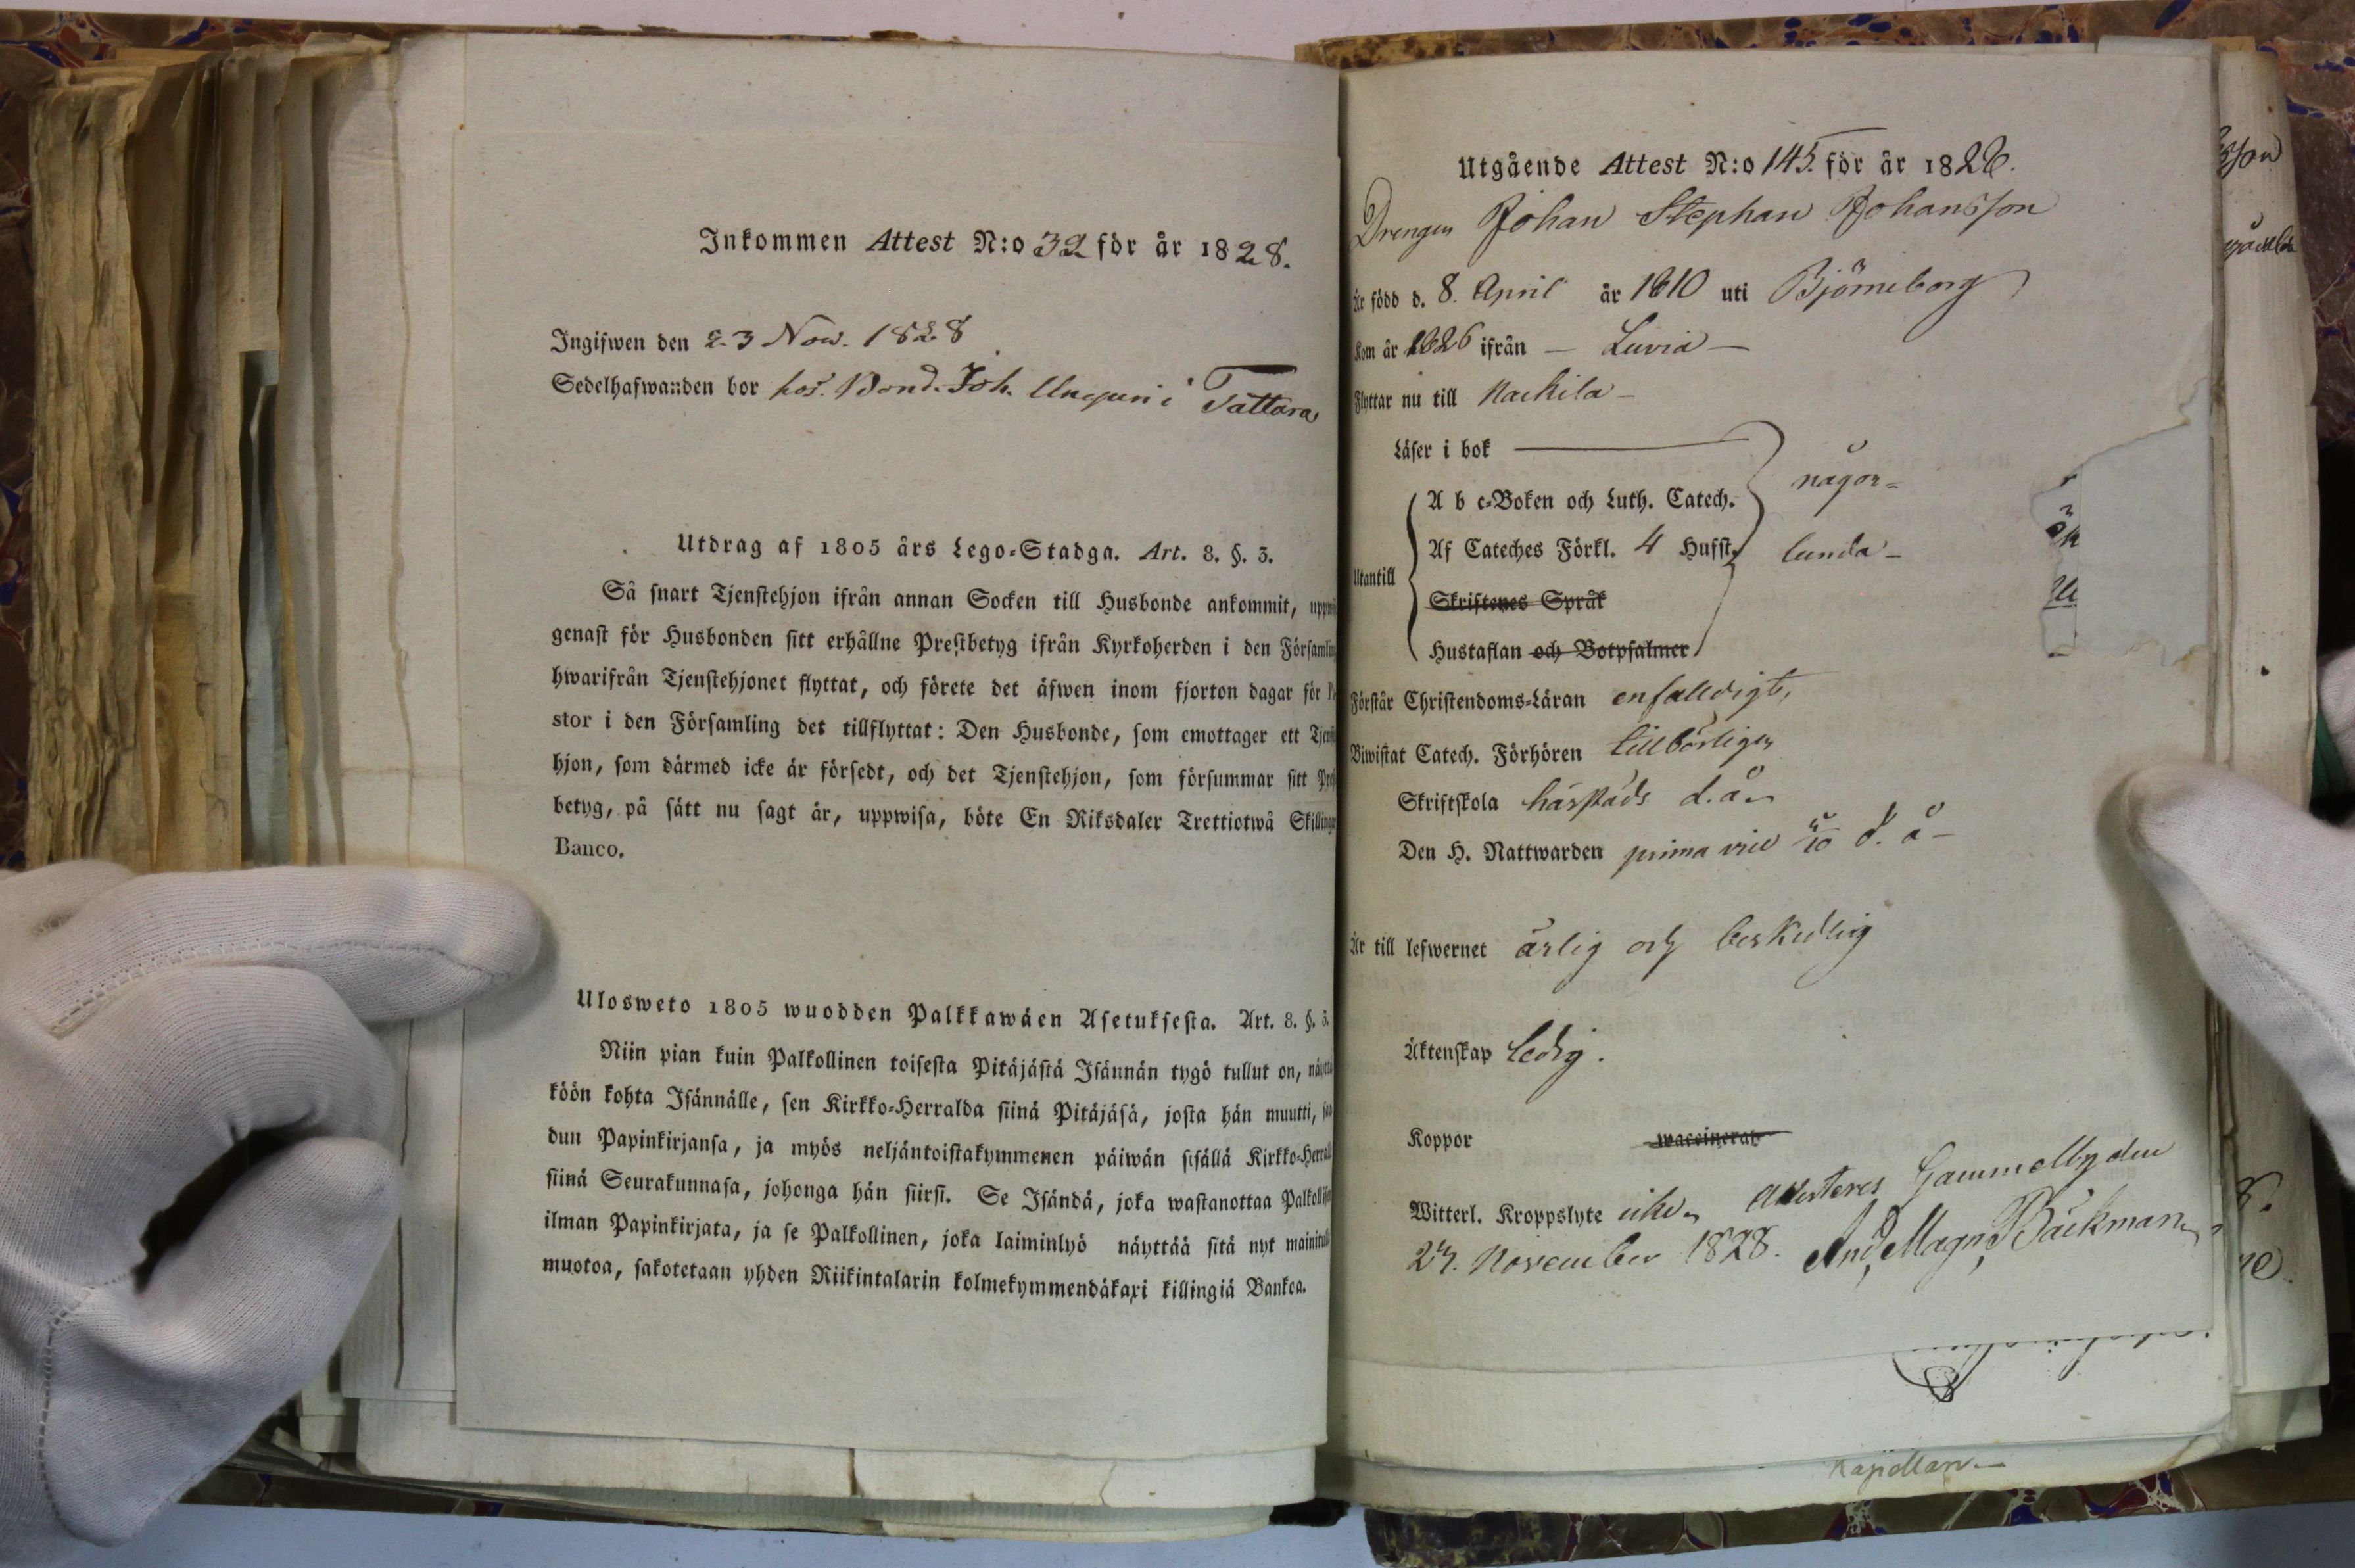 Inkommen Attest N:o 32 för år 1828.
Ingifwen den 23 Nov. 1828
Sedelhafwanden bor hos Bond. Joh. Unguri i Tattara
Utdrag af 1805 års Lego-Stadga. Art. 8. §. 3.
Så snart Tjenstehjon ifrån annan Socken till Husbonde ankommit,
genast för Husbonden sitt erhållne Prestbetyg ifrån Kyrkoherden i den Församling
hwarifrån Tjenstehjonet flyttat, och förete det äfwen inom fjorton dagar för
stor i den Församling det tillflyttat: Den Husbonde, som emottager ett Tjenst
hjon, som därmed icke är försedt, och det Tjenstehjon, som försummar sitt
betyg, på sätt nu sagt är, uppwisa, böte En Riksdaler Trettiotwå Skillingar
Banco.
Ulosweto 1805 wuodden Palkkawäen Asetuksesta. Art. 8. §. 3.
Niin pian kuin Palkollinen toisesta Pitäjästä Isännän tygö tullut on, näyttä
köön kohta Isännälle, sen Kirkko-Herralda siinä Pitäjäsä, josta hän muutti, saa
dun Papinkirjansa, ja myös neljäntoistakymmenen päiwän sisällä Kirkko-Herralle
siinä Seurakunnasa, johonga hän siirsi. Se Isändä, joka wastanottaa Palkollisen
ilman Papinkirjata, ja se Palkollinen, joka laiminlyö näyttää sitä nyt mainitulla
muotoa, sakotetaan yhden Riikintalarin kolmekymmendäkaxi killingiä Bankoa.
Utgående Attest N:o 145. för år 1828.
Drengen Johan Stephan Johansson
Är född d. 8. April år 1810 uti Björneborg
Kom år 1826 ifrån — Luvia —
Flyttar nu till Nackila —
Läser i bok
A b c-Boken och Luth. Catech. någor=
Af Cateches Förkl. 4 Hufst. lunda —
Utantill
Skriftenes Språk
Hustaflan och Botpsalmer
Förstår Christendoms-Läran enfalldigt,
Biwistat Catech. Förhören tillbörligen
Skriftskola härstäds d. å.
Den H. Nattwarden prima vice d. å —
Är till lefwernet ärlig och beskedlig
Äktenskap ledig.
Koppor waccinerad
Witterl. Kroppslyte icke, attesteras Gammelby den
November 1828. And. Magn. Bäckman
Kapellan —